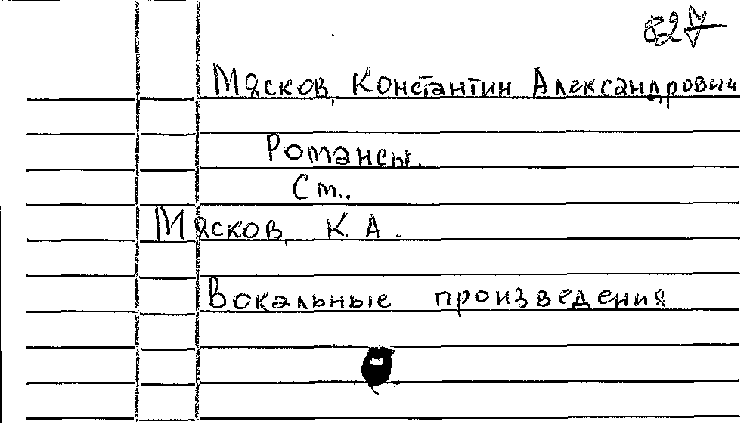 827
Мясков, Константин Александрович
Романсы.
Ст..
Мясков, К. А.
Вокальные произведения